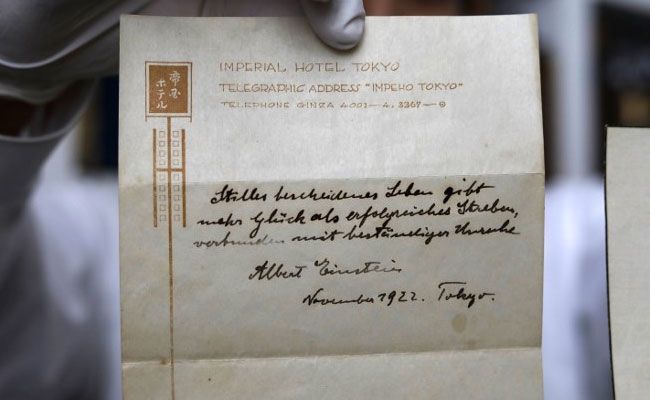 IMPERIAL HOTEL TOKYO
TELEGRAPHIC ADDRESS "IMPEHO TOKYO"
TELEPHONE GINZA 4001—4, 3367—9
帝國
ホテル
Stilles bescheidenes Leben gibt
mehr Glück als erfolgreiches Streben,
verbunden mit beständiger Unruhe
Albert Einstein
November 1922. Tokyo.